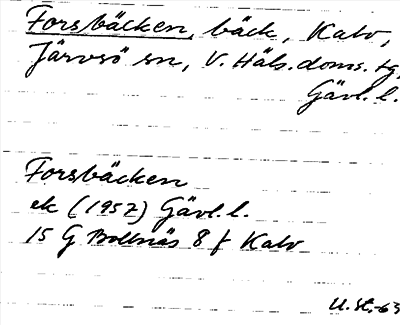 Forsbäcken, bäck, Kalv,
Järvsö sn, V. Häls. doms. tg,
Gävl. l.
Forsbäcken
ek (1957) Gävl. l.
15 G Bollnäs 8 f Kalv
U. St. -63